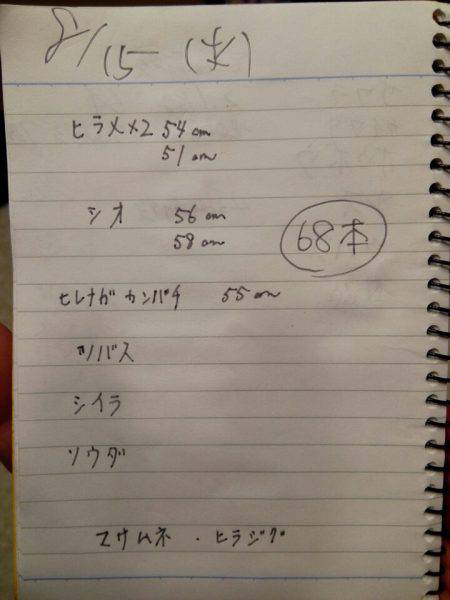 8/15(水)
ヒラメ×2 54cm
51cm
シオ 56cm
58cm
68本
ヒレナガカンパチ 55cm
ツバス
シイラ
ソウダ
マサムネ・ヒラジグ